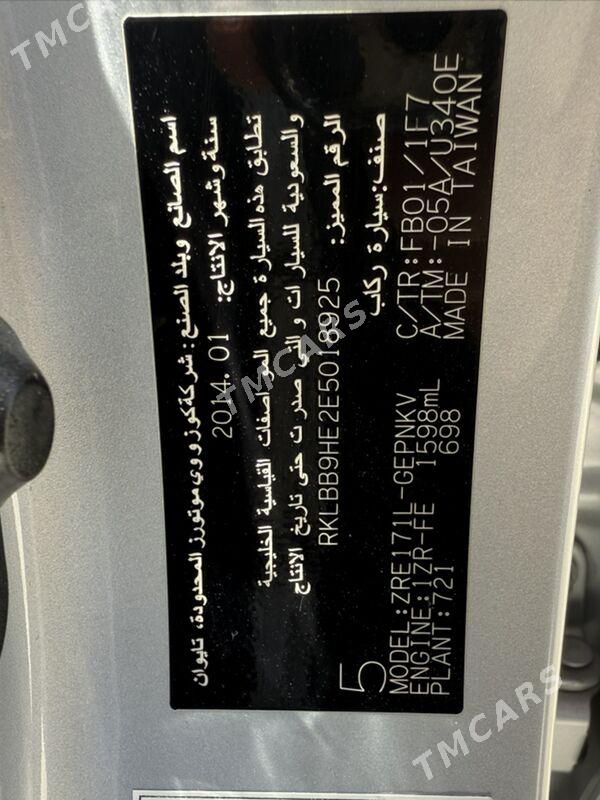 اسم الصانع وبلد الصنع: شركة كوزووي موتورز المحدودة، تايوان
سنة وشهر الانتاج: 2014.01
تطابق هذه السيارة جميع المواصفات القياسية الخليجية
والسعودية للسيارات والتي صدرت حتى تاريخ الانتاج
الرقم المميز: RKLBB9HE2E5018925
صنف: سيارة ركاب
5
MODEL:ZRE171L-GEPNKV C/TR:FB01/1F7
ENGINE:1ZR-FE 1598mL A/TM:-05A/U340E
PLANT:721 698 MADE IN TAIWAN
TMCARS
TMCARS
TMCARS
TMCARS